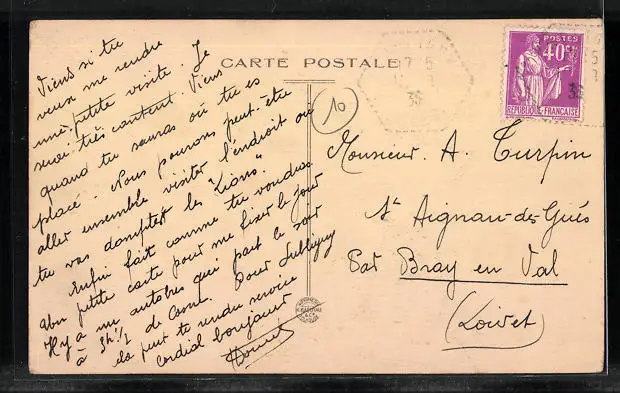 CARTE POSTALE
Viens si tu
veux me rendre
une petite visite. Je
serai très content. Viens
quand tu sauras où tu es
placé. Nous pourrons peut-être
aller ensemble visiter l'endroit où
tu vas dompter les "Lions".
Enfin fait comme tu voudras
une petite carte pour me fixer le jour
Il y a un autobus qui part le soir
à 5h 1/2 de Cosne. Pour Subligny
ça peut te rendre service
Cordial bonjour
10
POSTES
40c
REPUBLIQUE FRANÇAISE
15
7 5
35
Monsieur. A. Turpin
St Aignan-des-Gués
Par Bray en Val
(Loiret)